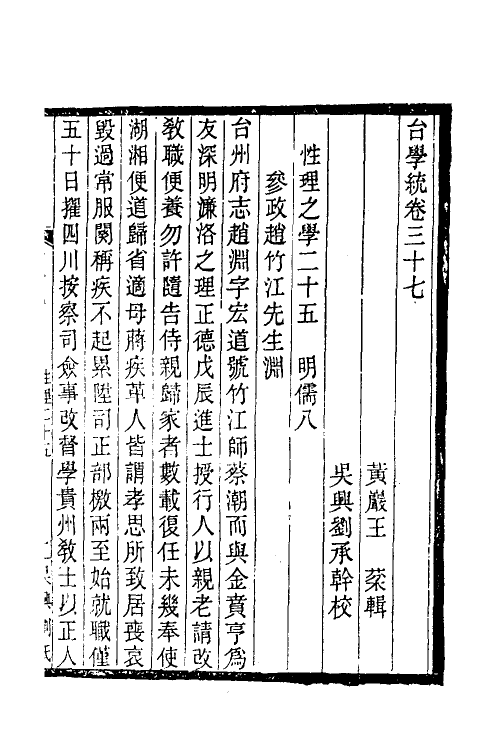 台學統卷三十七
黃巖王　棻輯
吳興劉承幹校
性理之學二十五　明儒八
參政趙竹江先生淵
台州府志趙淵字宏道號竹江師蔡潮而與金賁亨爲
友深明濂洛之理正德戊辰進士授行人以親老請改
教職便養勿許隨告侍親歸家者數載復任未幾奉使
湖湘便道歸省適母蔣疾革人皆謂孝思所致居喪哀
毀過常服闋稱疾不起累陞司正部檄兩至始就職僅
五十日擢四川按察司僉事改督學貴州教士以正人